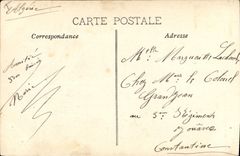 Algérie
CARTE POSTALE
Correspondance
Adresse
Amitiés
Marie
Melle Marguerite
Chez Mme le Colonel
Grandjean
au 3me Régiment
Zouaves
Constantine